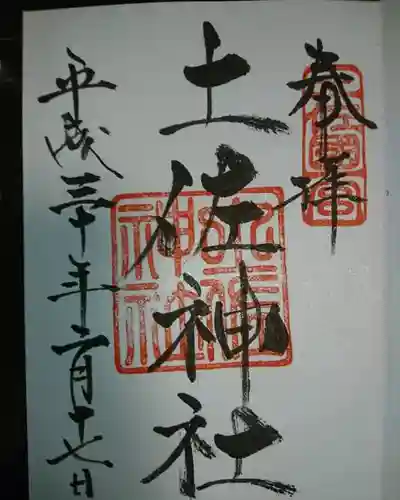 奉拝
土佐神社
平成三十年二月十七日
土佐神社